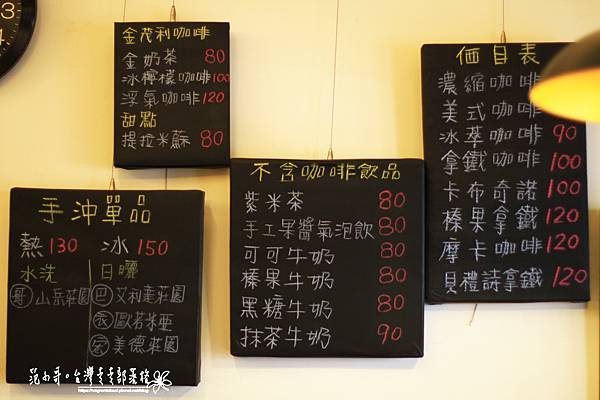 金茂利咖啡
金奶茶 80
冰檸檬咖啡 100
浮氣咖啡 120
甜點
提拉米蘇 80
手沖單品
熱 130 冰 150
水洗 日曬
哥 山岳莊園 巴 艾利產莊園
衣 歐若米亞
宏 美德莊園
不含咖啡飲品
紫米茶 80
手工果醬氣泡飲 80
可可牛奶 80
榛果牛奶 80
黑糖牛奶 80
抹茶牛奶 90
価目表
濃縮咖啡
美式咖啡
冰萃咖啡 90
拿鐵咖啡 100
卡布奇諾 100
榛果拿鐵 120
摩卡咖啡 120
貝禮詩拿鐵 120
3
4